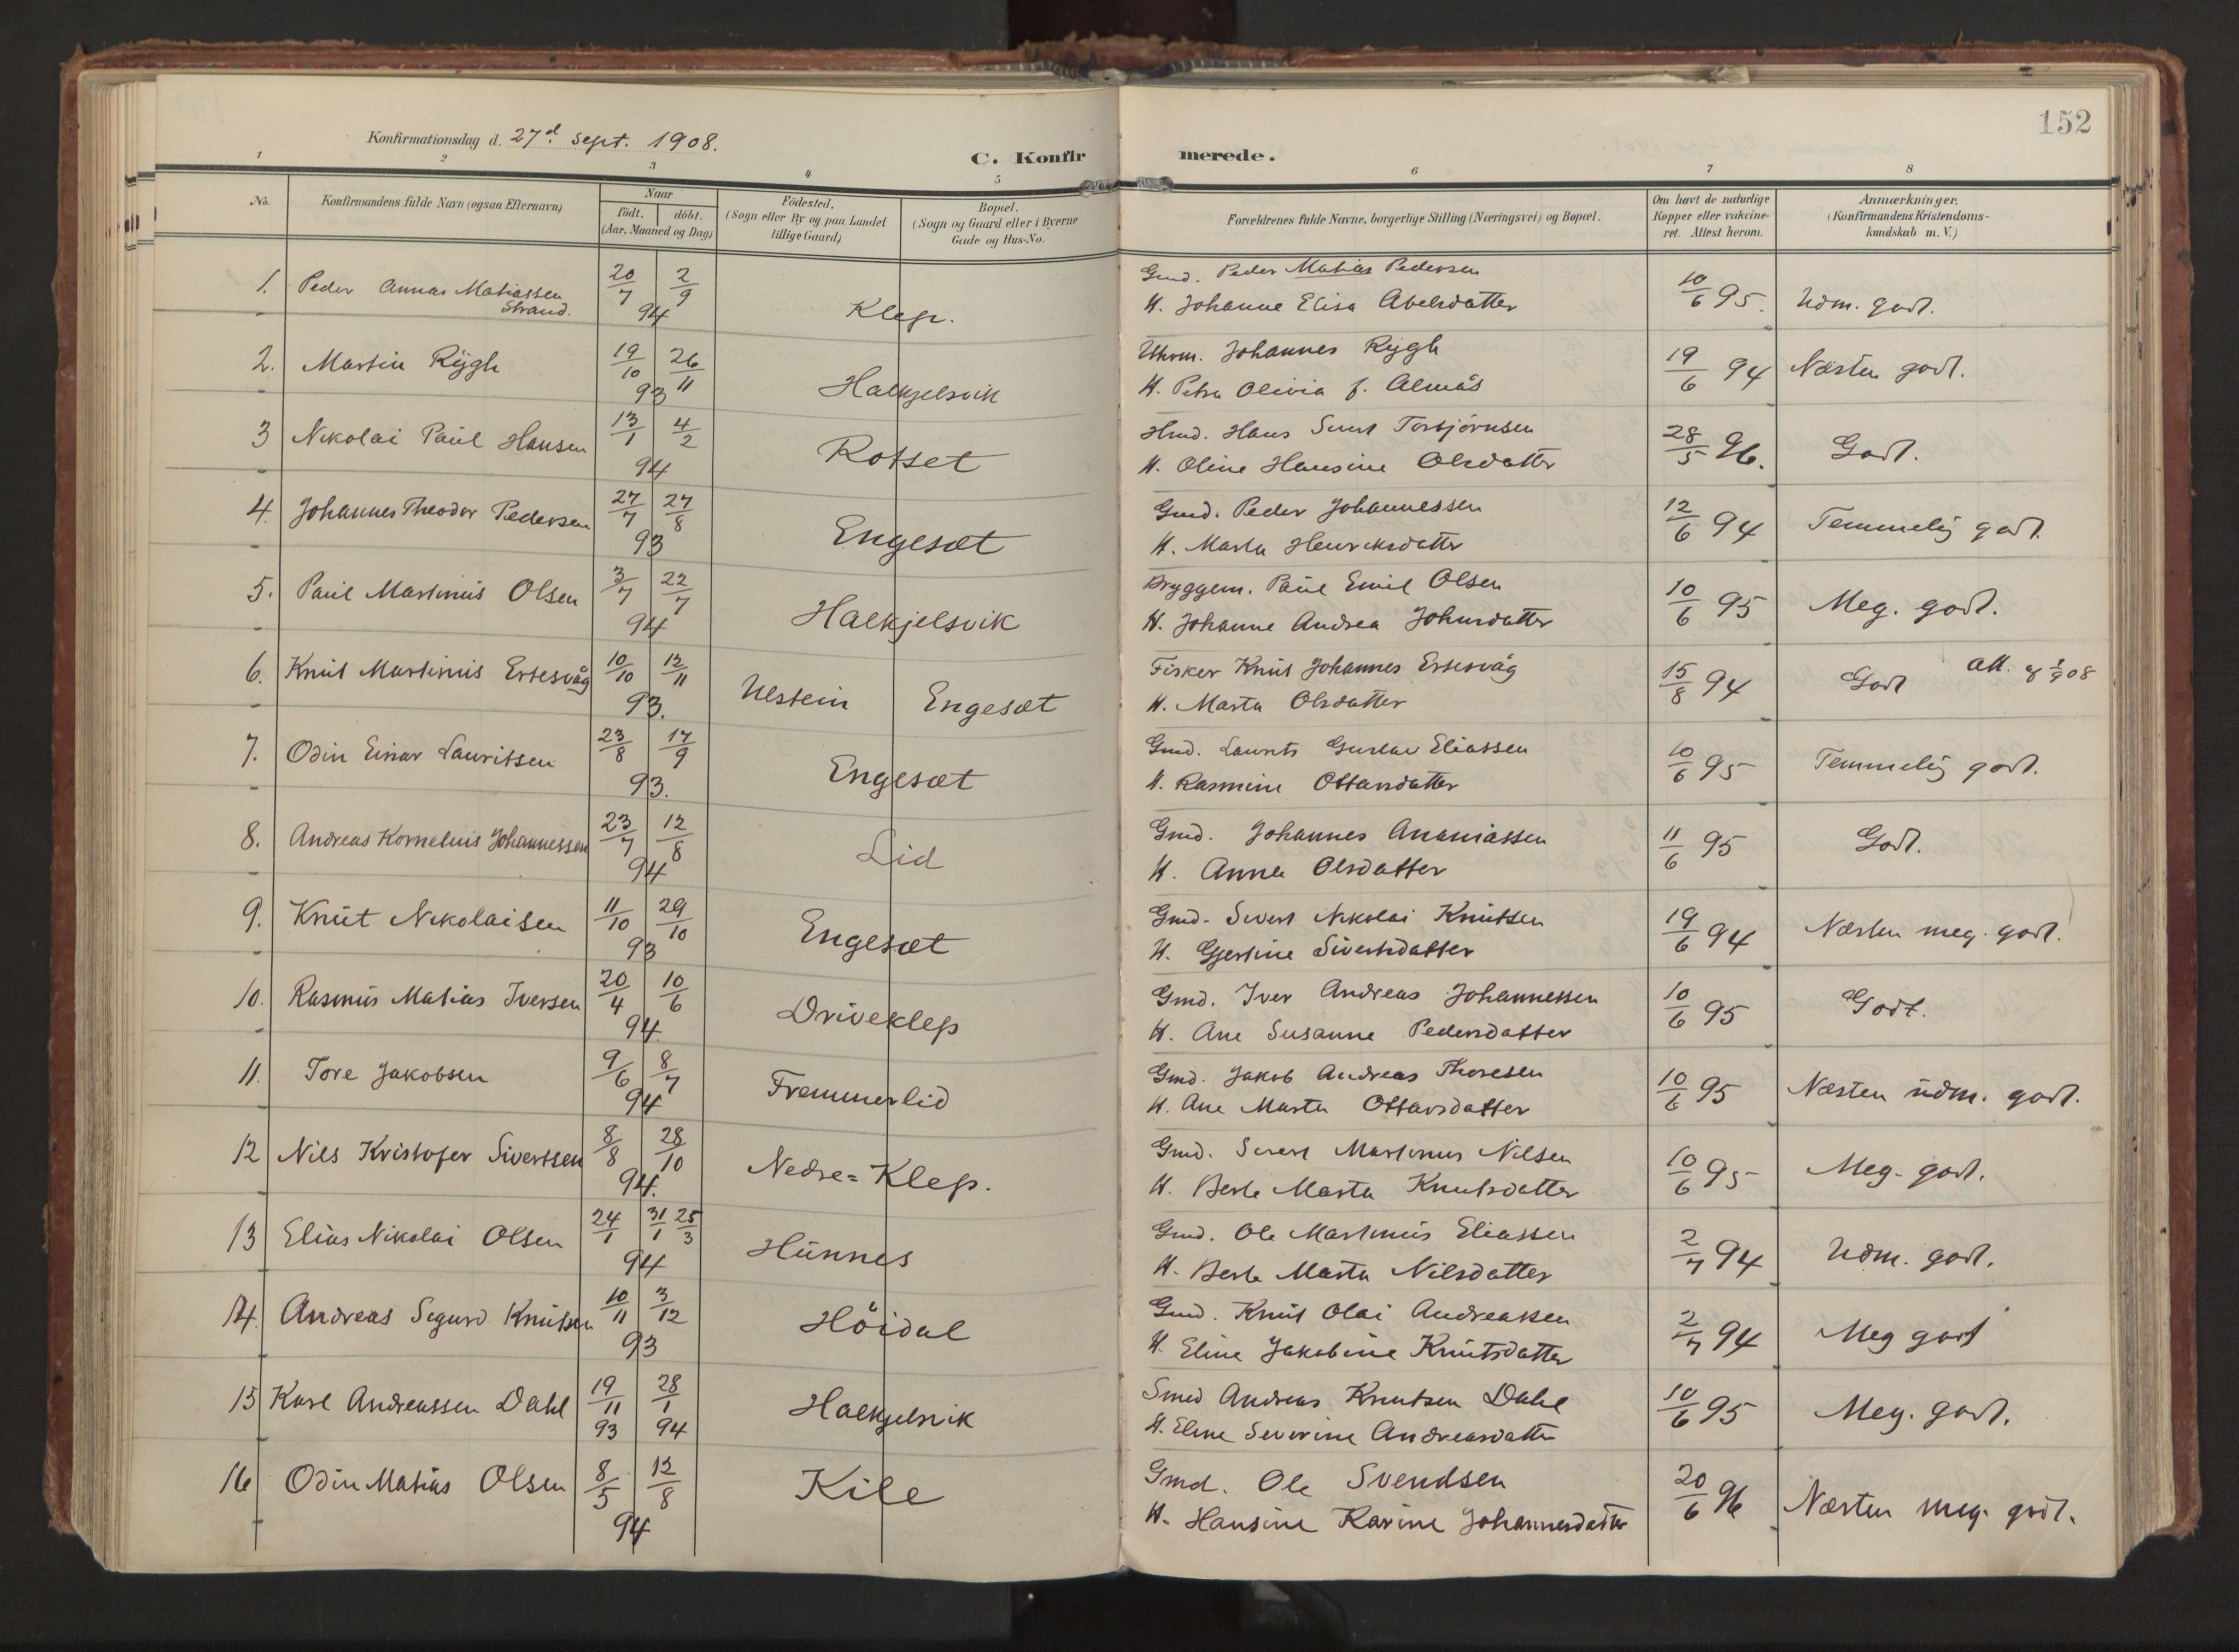 152
Konfirmationsdag d. 27d. Sept. 1908.
C. Konfirmerede.
1 2 3 4 5 6 7 8
No. Konfirmandens fulde Navn (ogsaa Efternavn) Naar födt. döbt. (Aar, Maaned og Dag) Födested. (Sogn eller By og paa Landet tillige Gaard) Bopæl. (Sogn og Gaard eller i Byerne Gade og Hus-No. Forældrenes fulde Navne, borgerlige Stilling (Næringsvei) og Bopæl. Om havt de naturlige Kopper eller vakcineret. Attest herom. Anmærkninger. (Konfirmandens Kristendomskundskab m. V.)
1. Peder Annas Matiassen 20/7 2/9 Gmd. Peder Matias Pedersen 10/6 95. Udm. godt.
Strand. 94 Klep. H. Johanne Elisa Abelsdatter
2. Martin Rygh 19/10 26/11 Uhrm. Johannes Rygh 19/6 94 Næsten godt.
93 Haekjelsvik H. Petra Olivia f. Almås
3 Nikolai Paul Hansen 13/1 4/2 Hmd. Hans Torbjörnsen 28/5 96. Godt.
94 Rotset H. Oline Hansine Olsdatter
4. Johannes Theodor Pedersen 27/7 27/8 Gmd. Peder Johannessen 12/6 94 Temmelig godt.
93 Engesæt H. Marta Henriksdatter
5. Paul Martinus Olsen 3/7 22/7 Bryggem. Paul Emil Olsen 10/6 95 Meg. godt.
94 Haekjelsvik H. Johanne Andrea Johnsdatter
6. Knut Martinus Ertesvåg 10/10 12/11 Fisker Knut Johannes Ertesvåg 15/8 94 Godt att. af 1/9 08
93. Ulstein Engesæt H. Marta Olsdatter
7. Odin Einar Lauritsen 23/8 17/9 Gmd. Laurits Gustav Eliassen 10/6 95 Temmelig godt.
93. Engesæt H. Rasmine Ottarsdatter
8. Andreas Kornelius Johannessen 23/7 12/8 Gmd. Johannes Ananiassen 11/6 95 Godt.
94 Lid H. Anna Olsdatter
9. Knut Nikolaisen 11/10 29/10 Gmd. Sivert Nikolai Knutsen 19/6 94 Næsten meg. godt.
93 Engesæt H. Gjertine Sivertsdatter
10. Rasmus Matias Iversen 20/4 10/6 Gmd. Iver Andreas Johannessen 10/6 95 Godt.
94. Driveklep H. Ane Susanne Pedersdatter
11. Tore Jakobsen 9/6 8/7 Gmd. Jakob Andreas Thoresen 10/6 95 Næsten udm. godt.
94 Fremmerlid H. Ane Marta Ottarsdatter
12 Nils Kristofer Sivertsen 8/8 28/10 Gmd. Sivert Martinus Nilsen 10/6 95 Meg. godt.
94. Nedre= Klep. H. Berte Marta Knutsdatter
13 Elias Nikolai Olsen 24/1 31/1 25/3 Gmd. Ole Martinus Eliassen 2/7 94 Udm. godt.
94 Hunnes H. Berte Marta Nilsdatter
14. Andreas Sigurd Knutsen 10/11 3/12 Gmd. Knut Olai Andreassen 2/7 94 Meg godt
93 Höidal H. Eline Jakobine Knutsdatter
15 Karl Andreassen Dahl 19/11 28/1 Smed Andreas Knutsen Dahl 10/6 95 Meg. godt.
93 94 Haekjelsvik H. Eline Severine Andreasdatter
16 Odin Matias Olsen 8/5 12/8 Gmd. Ole Svendsen 20/6 96 Næsten meg. godt.
94 Kile H. Hansine Karine Johannesdatter